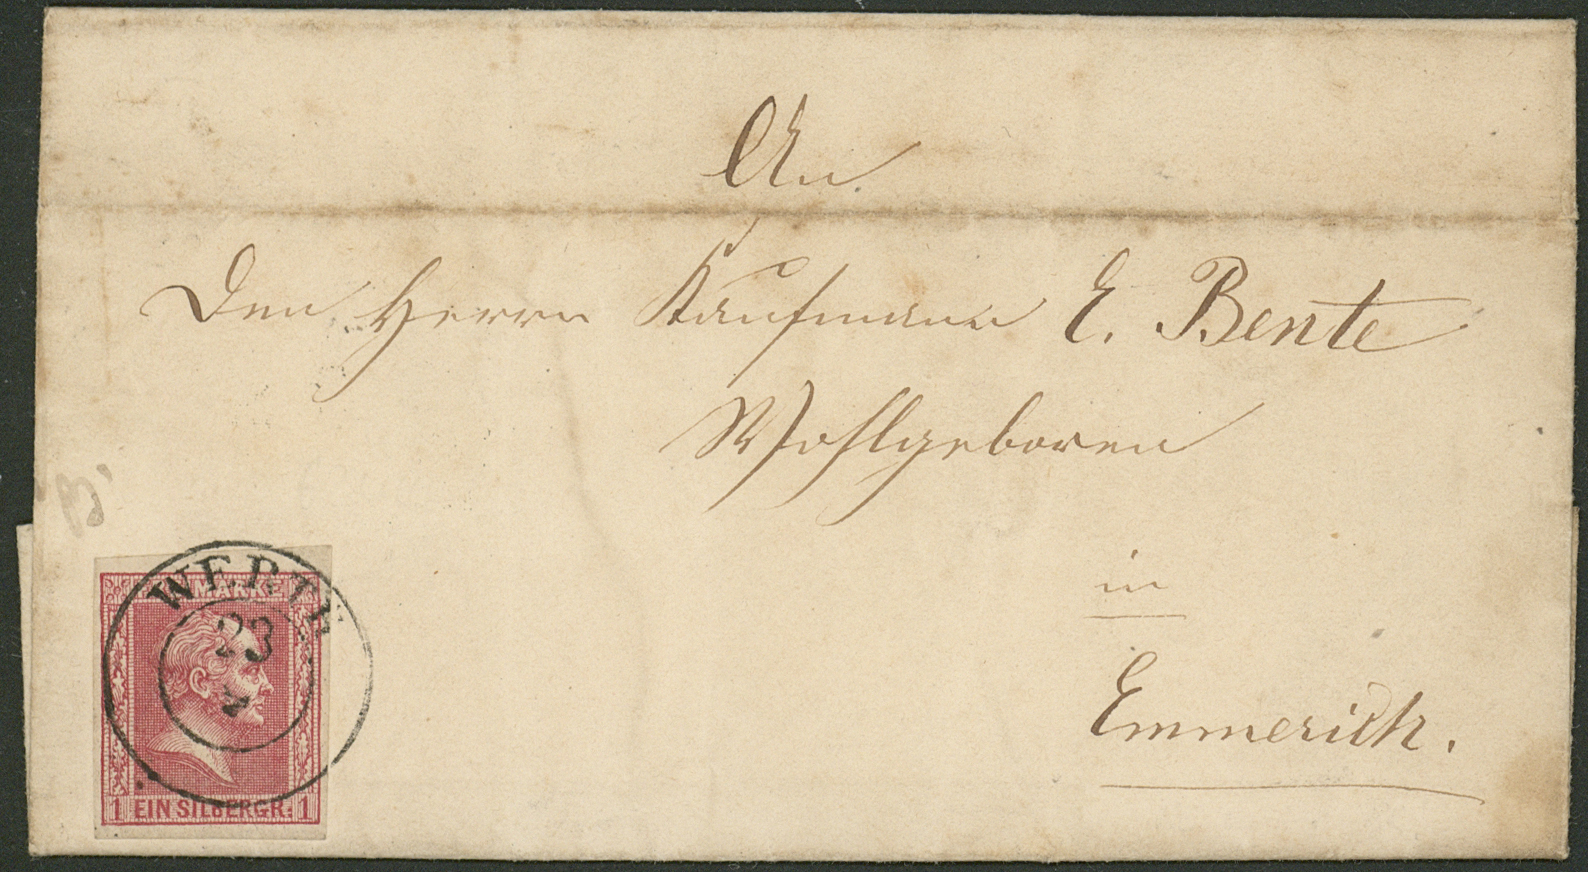 An
Den Herrn Kaufmann E. Bente
Wohlgeboren
in
Emmerich.
B.
WERTH
23
MARKE
1 EIN SILBERGR. 1